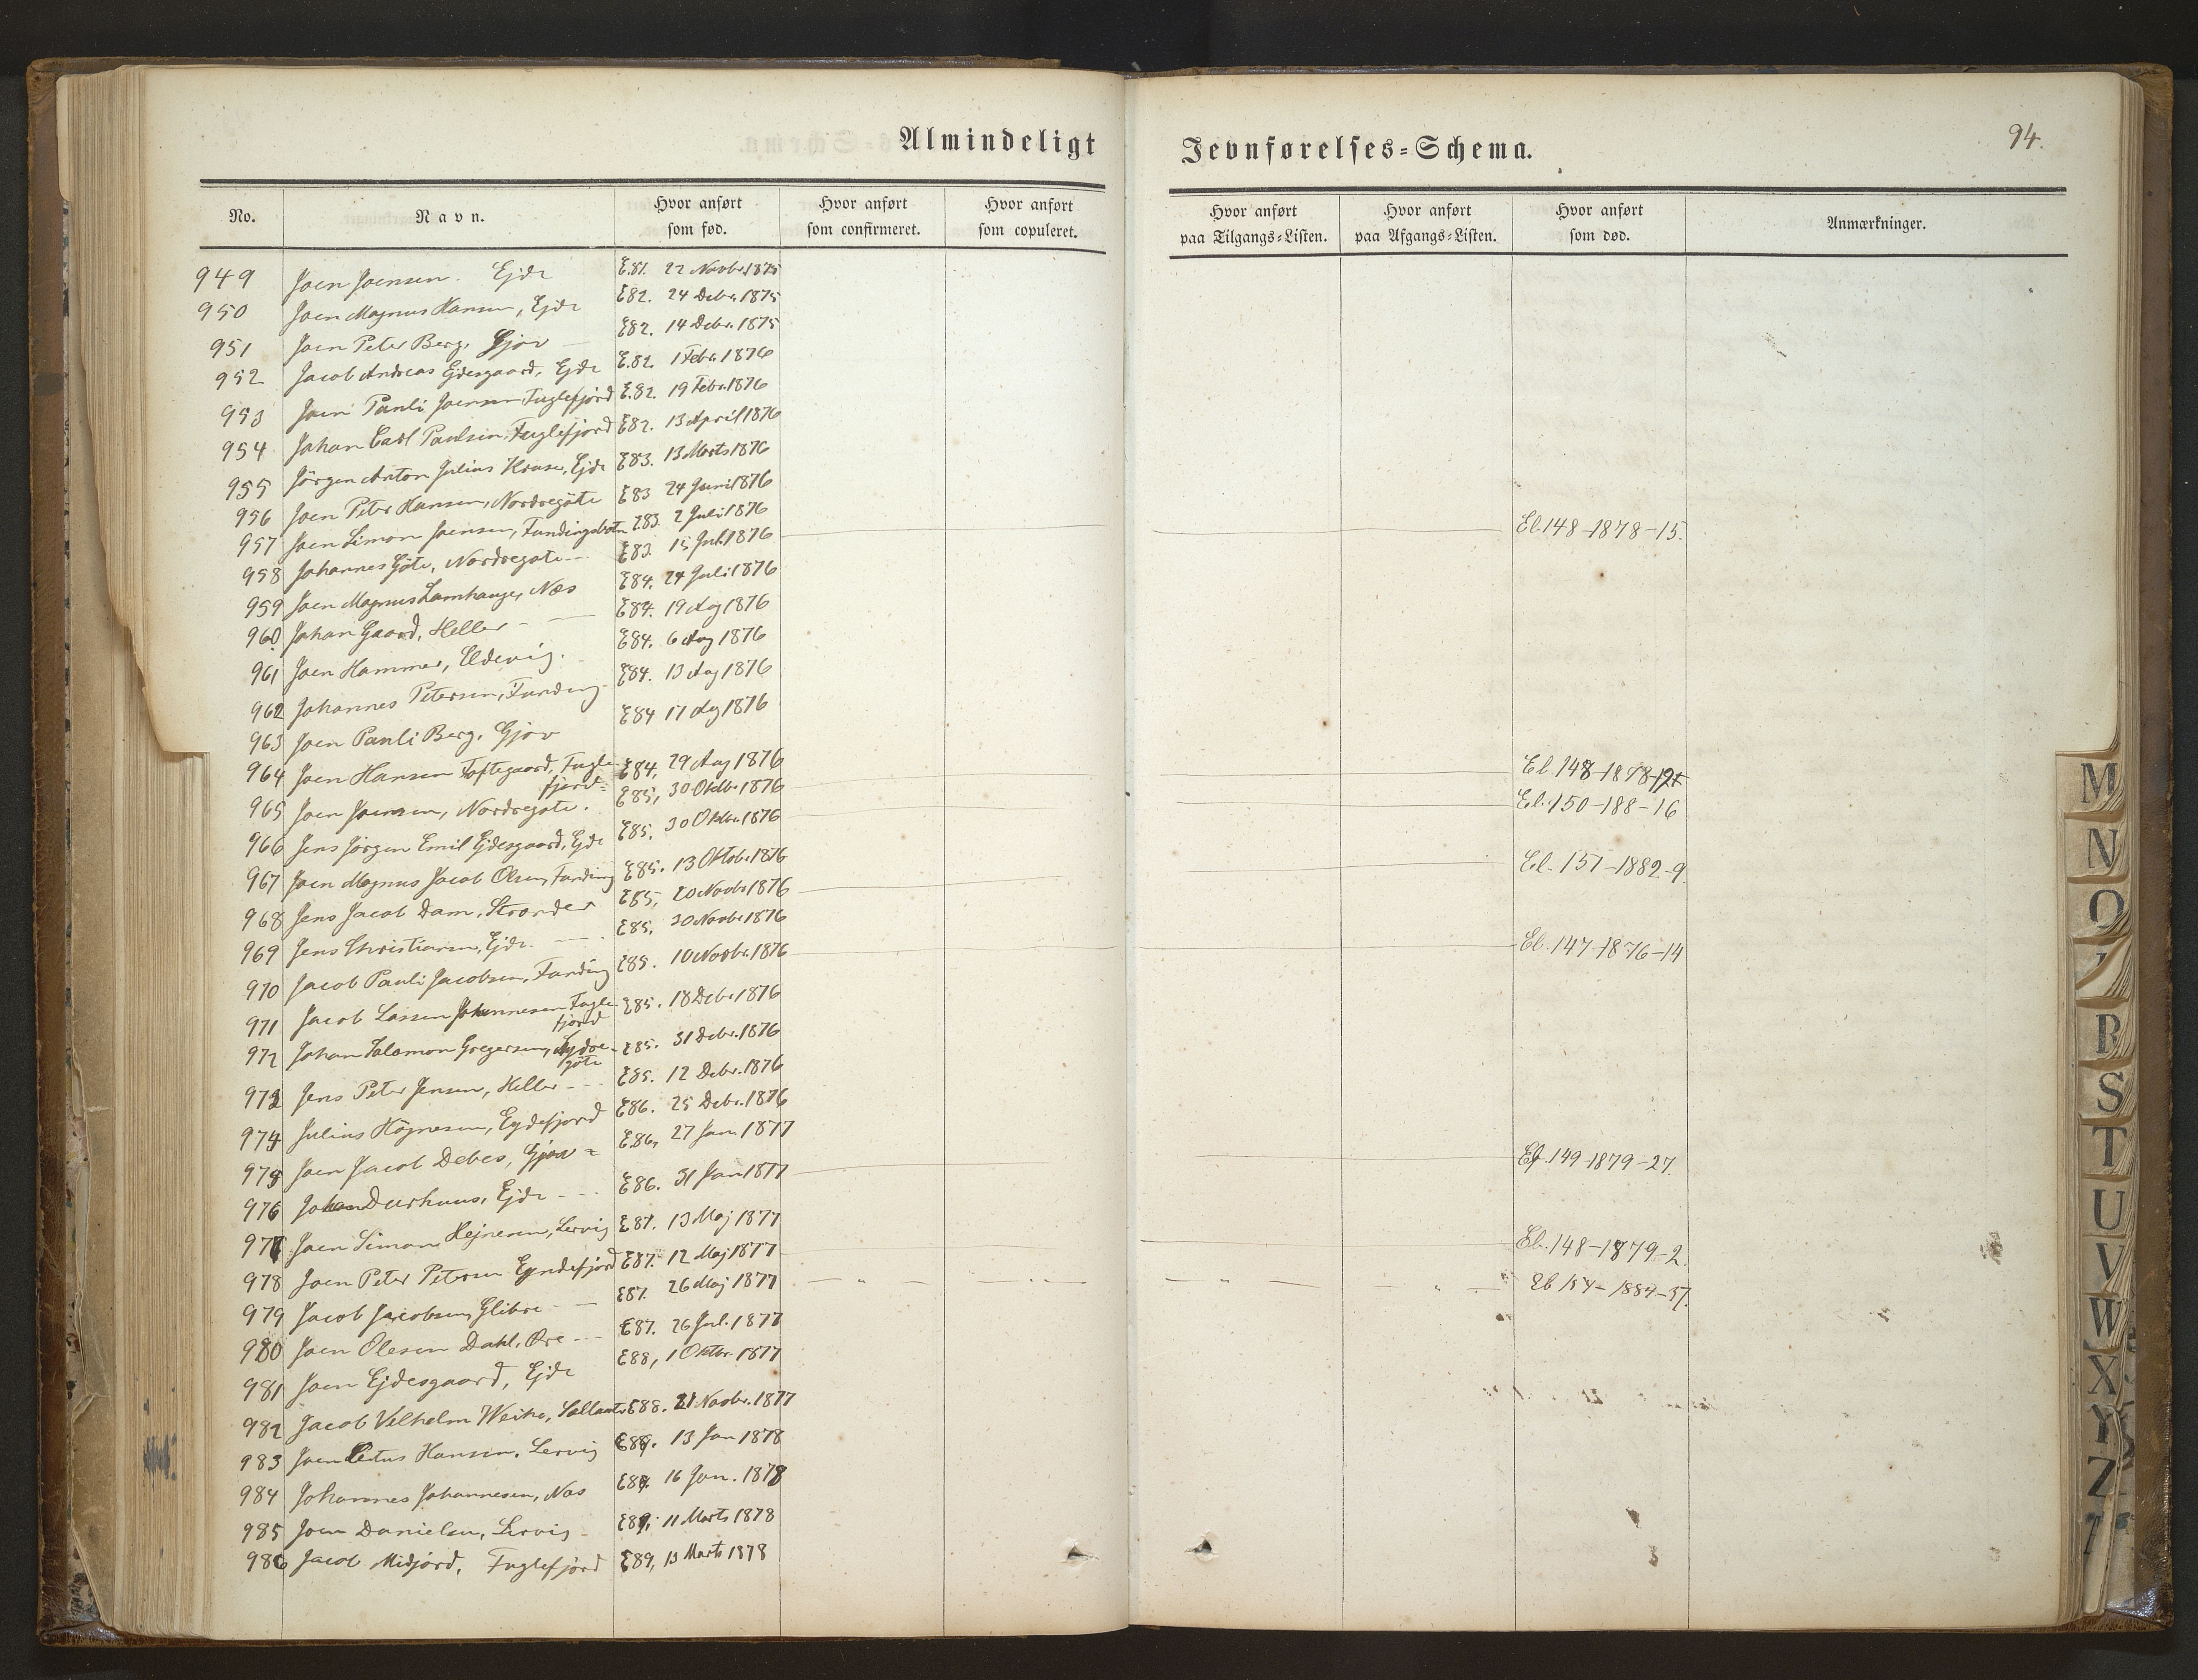 Almindeligt Jevnførelses=Schema.
94.
No. Navn. Hvor anført som fød. Hvor anført som confirmeret. Hvor anført som copuleret. Hvor anført paa Tilgangs=Listen. Hvor anført paa Afgangs=Listen. Hvor anført som død. Anmærkninger.
949 Joen Joensen. Ejde E.81. 22 Novbr 1875
950 Joen Magnus Hansen, Ejde E82. 24 Debr. 1875
951 Joen Peter Berg, Gjov E82. 14 Debr. 1875
952 Jacob Andreas Ejdesgaard, Ejde E.82. 1 Febr. 1876
953 Joen Pauli Joensen, Fuglefjord E.82. 19 Febr. 1876
954 Johan Carl Poulsen, Fuglefjord E82. 13 April 1876
955 Jörgen Anton Julius Kruse, Ejde E83. 13 Marts 1876
956 Joen Peter Hansen, Nordregöte E83 24 Juni 1876
957 Joen Simon Joensen, Fundingsbotn E83. 2 Juli 1876 El. 148-1878-15.
958 Johannes Göte, Nordregote E83. 15 Jul. 1876
959 Joen Magnus Lamhauge, Næs E84. 24 Juli 1876
960 Johan Gaard, Heller E84. 19 Aug 1876
961 Joen Hammer, Eldevig. E84. 6 Aug 1876
962 Johannes Petersen, Funding E84. 13 Aug 1876
963 Joen Pauli Berg, Gjov E84 17 Aug 1876
964 Joen Hansen Toftegaard, Fugle-
fjord= E84, 29 Aug 1876 El. 148-1878-
965 Joen Joensen, Nordregote. E85, 30 Oktbr. 1876 El. 150-188-16
966 Jens Jörgen Emil Ejdesgaard, Ejde E85. 30 Oktbr. 1876
967 Joen Magnus Jacob Olsen, Funding E85. 13 Oktobr. 1876 El. 151-1882-9.
968 Jens Jacob Dam, Strander E85, 20 Novbr 1876
969 Jens Christiansen, Ejde. E85. 30 Novbr. 1876
970 Jacob Pauli Jacobsen, Funding E85. 10 Novbr. 1876 El. 147-1876-14
971 Jacob Lassen Johannesen, Fugle-
fjord E85. 18 Debr 1876
972 Johan Salomon Gregersen, Sydre-
göte E85. 31 Debr. 1876
973 Jens Peter Jensen, Heller E85. 12 Debr. 1876
974 Julius Högnesen, Eydefjord E86. 25 Debr. 1876
975 Joen Jacob Debes, Gjov E.86, 27 Jan. 1877
976 Johan Durhuus, Ejde E86. 31 Jan 1877 149-1879-27.
977 Joen Simon Hejnesen, Lervig E87. 13 Maj 1877
978 Joen Peter Petersen Eyndefjord E87. 12 Maj 1877 El. 148-1879-2.
979 Jacob Jacobsen, Glibre E87. 26 Maj 1877 " " " El 154-1884-37.
980 Joen Olesen Dahl, Öre E87. 26 Jul. 1877
981 Joen Ejdesgaard, Ejde E88, 1 Oktbr. 1877
982 Jacob Vilhelm Weihe, Sellatr E88. 21 Novbr. 1877
983 Joen Petus Hansen, Lervig E89. 13 Jan 1878
984 Johannes Johannesen, Næs E89. 16 Jan. 1878
985 Joen Danielsen, Lervig E89, 11 Marts 1878
986 Jacob Midjord, Fuglefjord E89, 13 Marts 1878
M
N
O
R
S
T
U
V
W
X
Y
Z